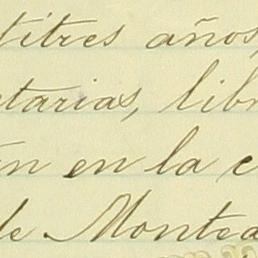 titres años,
etarias, libr
án en la c
de Montea